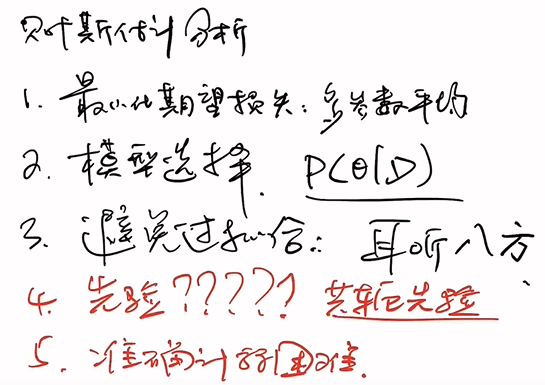 贝叶斯估计分析
1. 最小化期望损失：多参数平均
2. 模型选择. P(θ|D)
3. 避免过拟合：耳听八方.
4. 先验????? 共轭先验
5. 准确计算困难.